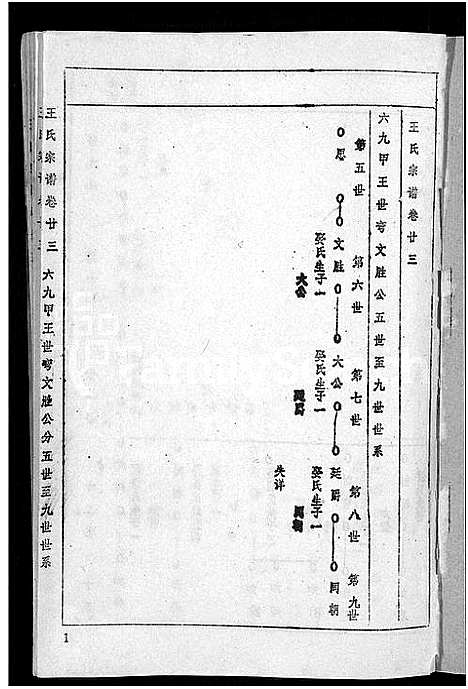 王氏宗谱卷廿三
六九甲王世穹文胜公五世至九世世系
第五世 第六世 第七世 第八世 第九世
思 文胜 大公 廷爵 同朝
娶氏生子一 大公
娶氏生子一 廷爵
娶氏生子一 同朝
失详
王氏宗谱卷廿三 六九甲王世穹文胜公分五世至九世世系
1